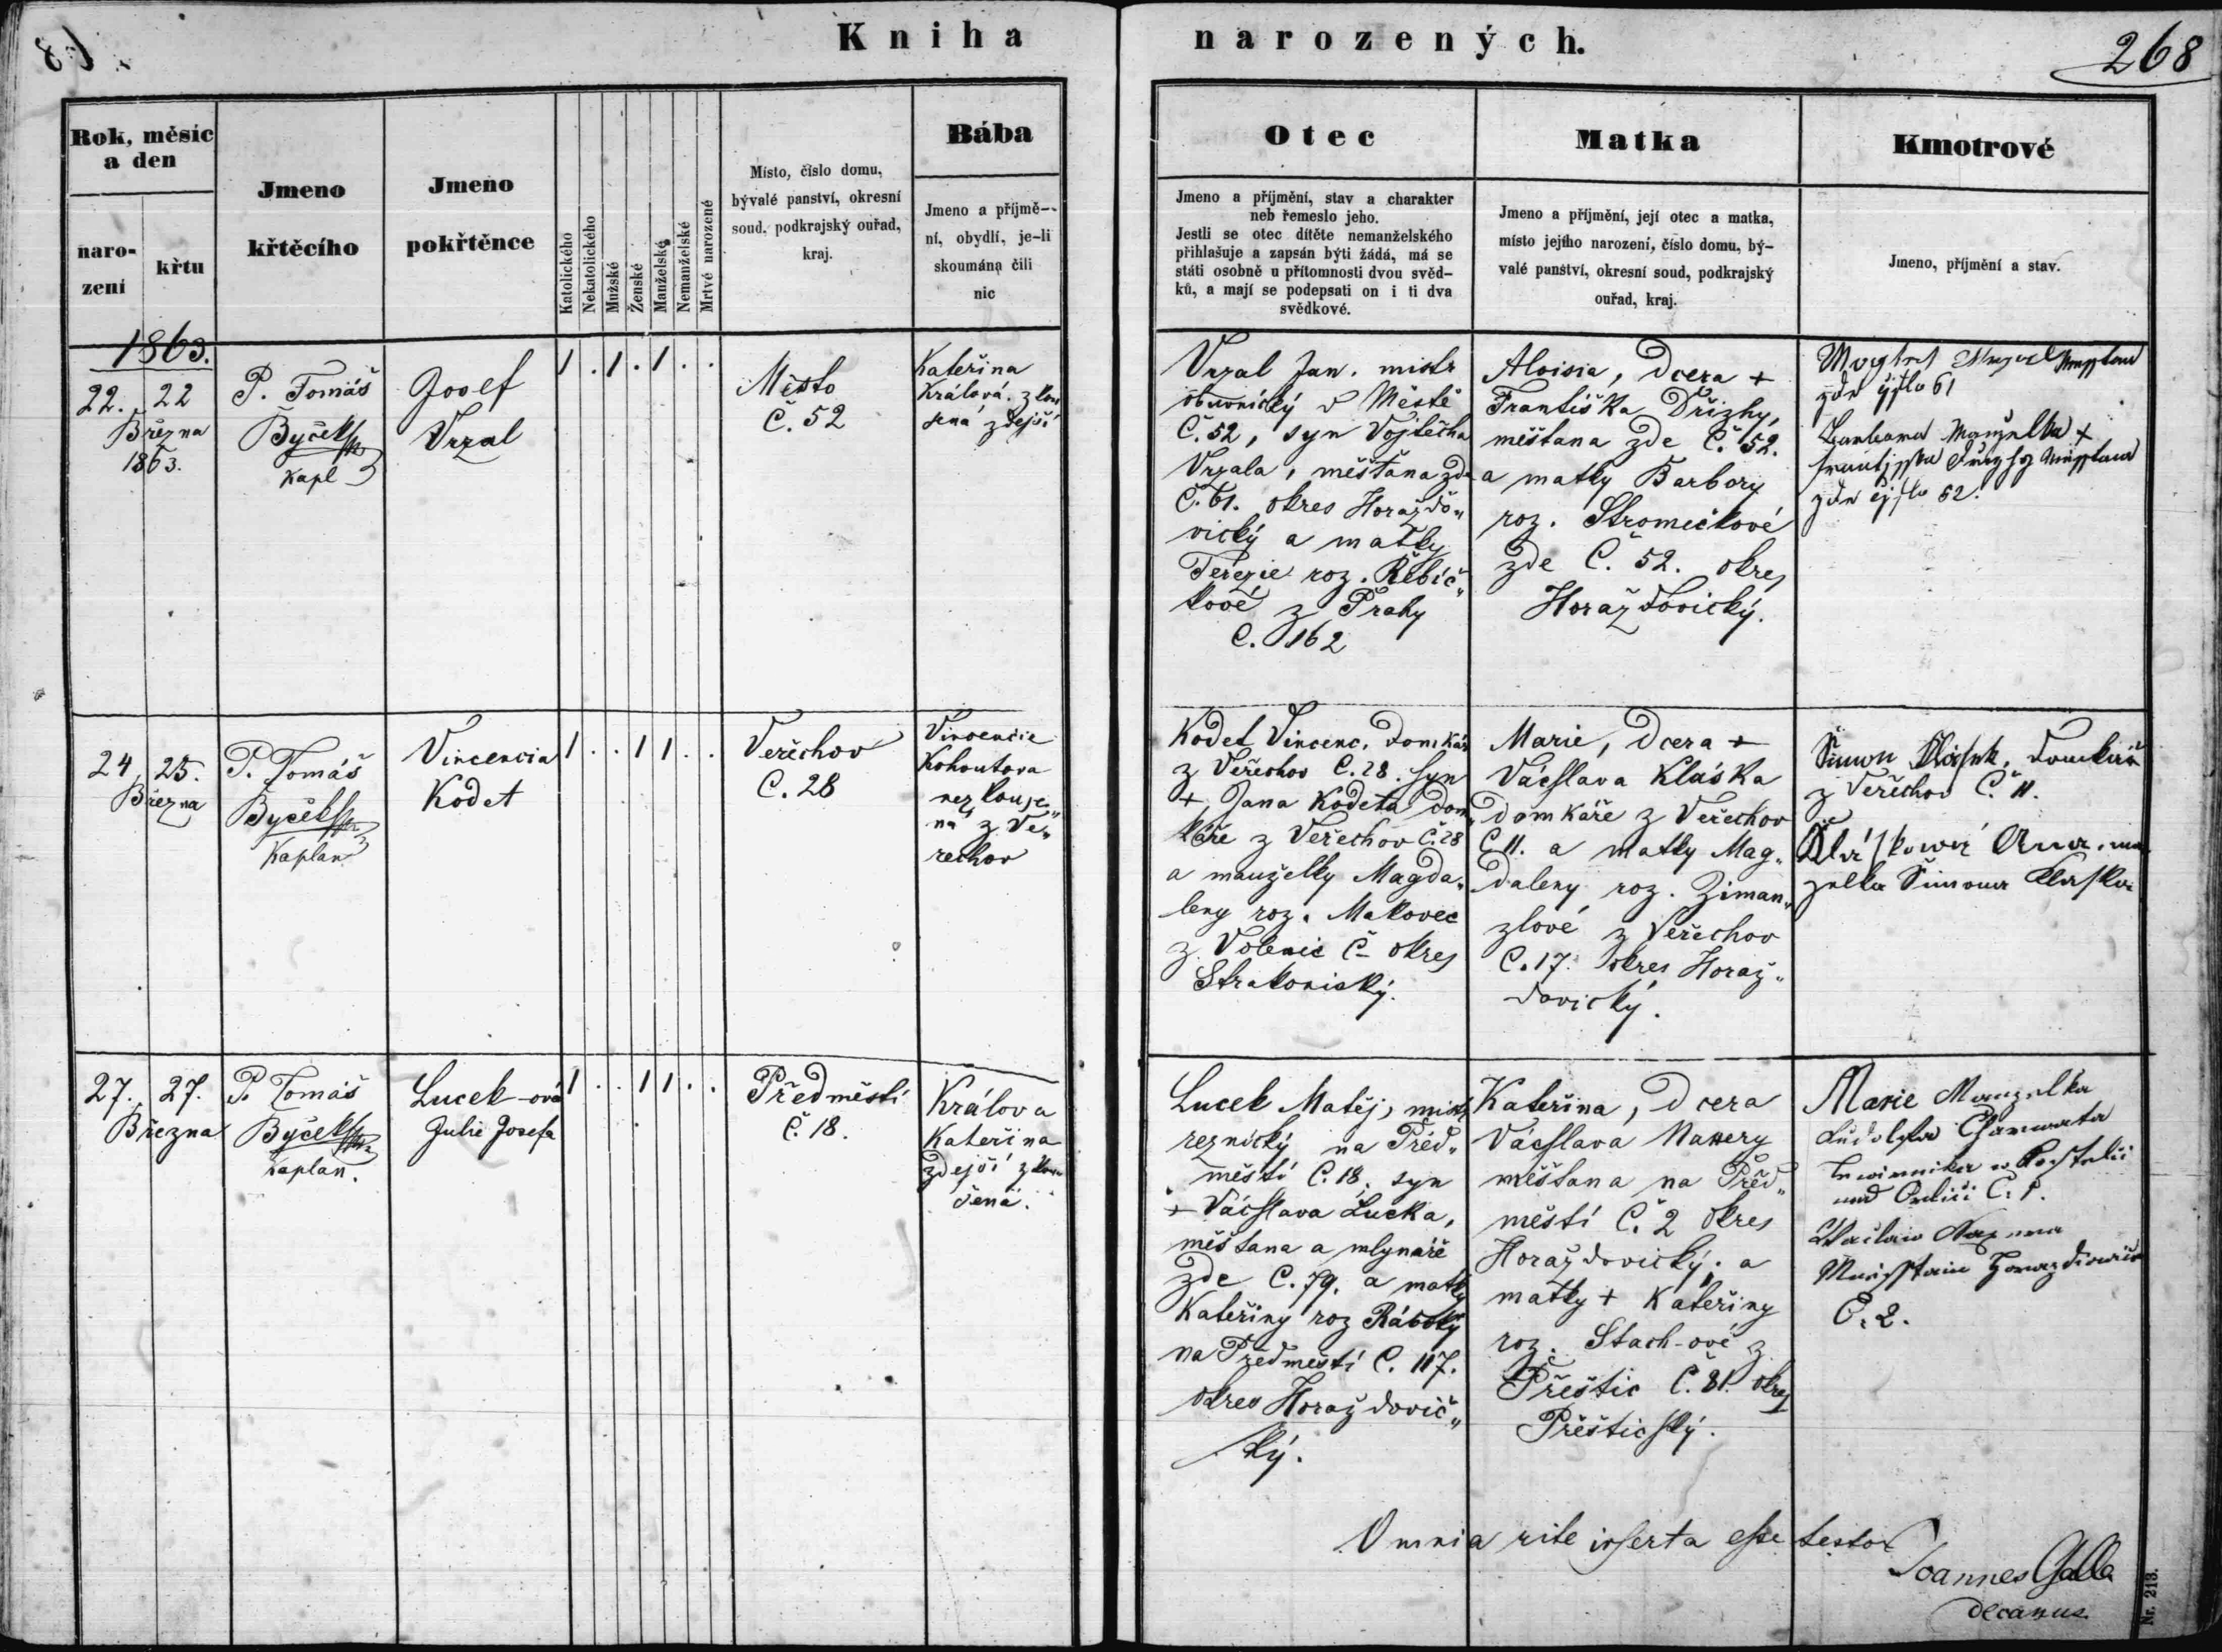 Kniha narozených.
268
Rok, měsíc
a den
naro-
zení
křtu
Jmeno
křtěcího
Jmeno
pokřtěnce
Katolického
Nekatolického
Mužské
Ženské
Manželské
Nemanželské
Mrtvě narozené
Místo, číslo domu,
bývalé panství, okresní
soud, podkrajský ouřad,
kraj.
Bába
Jmeno a příjmě-
ní, obydlí, je-li
skoumána čili
nic
Otec
Jmeno a příjmění, stav a charakter
neb řemeslo jeho.
Jestli se otec dítěte nemanželského
přihlašuje a zapsán býti žádá, má se
státi osobně u přítomnosti dvou svěd-
ků, a mají se podepsati on i ti dva
svědkové.
Matka
Jmeno a příjmění, její otec a matka,
místo jejího narození, číslo domu, bý-
valé panství, okresní soud, podkrajský
ouřad, kraj.
Kmotrové
Jmeno, příjmění a stav.
1863.
22. 22
Března
1863.
P. Tomáš
Byček
kapl
Josef
Vrzal
1 . 1 . 1 . .
Město
Č. 52
Kateřina
Králová. zkou
šená zdejší
Vrzal Jan. mistr
obuvnický v Městě
Č. 52, syn Vojtěcha
Vrzala, měšťana zde
Č. 61. okres Horažďo„
vický a matky
Terezie roz. Řebíč„
kové z Prahy
C. 162
Aloisia, Dcera +
Františka Dřízhy,
měštana zde Č. 52.
a matky Barbory
roz. Stromečkové
zde Č. 52. okres
Horažďovický.
zde čjslo 61
Barbora Manželka +
zde čjslo 52.
24 25.
Března
P. Tomáš
Byček
Kaplan
Vincencia
Kodet
1 . . 1 1 . .
Veřechov
C. 28
Vincencie
Kohoutova
nezkouše„
ná z Ve„
rechov
Kodet Vincenc. Domkář
z Veřechov C. 28. syn
+ Jana Kodeta dom„
káře z Veřechov č. 28
a manželky Magda„
leny roz. Makovec
z Volenic Č- okres
Strakonický.
Marie, Dcera +
Václava Kláska
domkáře z Veřechov
C 11. a matky Mag„
daleny roz. Ziman„
zlové z Veřechov
C. 17. okres Horaž„
dovický.
Šimon Klásek, Domkář
z Veřechov Č. 11.
Klásková Anna. man
zelka Šimona Kláska
27. 27.
Března
P. Tomáš
Byček
kaplan.
Lucek-ová
Julie Josefa
1 . . 1 1 . .
Předměstí
Č. 18.
Králova
Kateřina
zdejší zkou
šená.
Lucek Matěj, mistr
reznický na Před„
městí C. 18. syn
+ Václava Lucka,
měštana a mlynáře
zde C. 79. a matky
Kateřiny roz Rábský
na Předměstí C. 117.
okres Horaždovič„
ký.
Kateřina, Dcera
Václava Naxery
měštana na Před„
městí Č. 2 okres
Horaždovický; a
matky + Kateřiny
roz. Stach-ové z
Přeštic C. 81. okres
Přěštický.
Marie Manzelka
nad Orlicí C. 1.
C. 2.
Omnia rite inserta esse testor
Joannes Galla
decanus
Nr. 213.